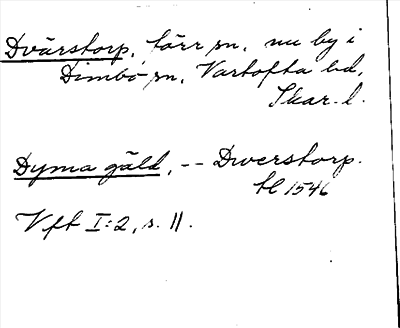 Dvärstorp, Kärr sn, nu by i
Dimbo sn, Vartofta hd,
Skar. l.
Dyma gäld, -- Dwerstorp.
tl 1546
Vft I:2, s. 11.